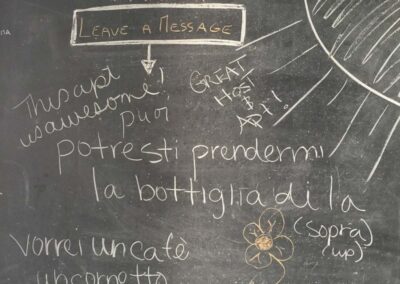 LEAVE A MESSAGE
This apt
is awesome!
GREAT
HOST
&
APT!
puoi
potresti prendermi
la bottiglia di là
(sopra)
(up)
vorrei un cafè
un cornetto